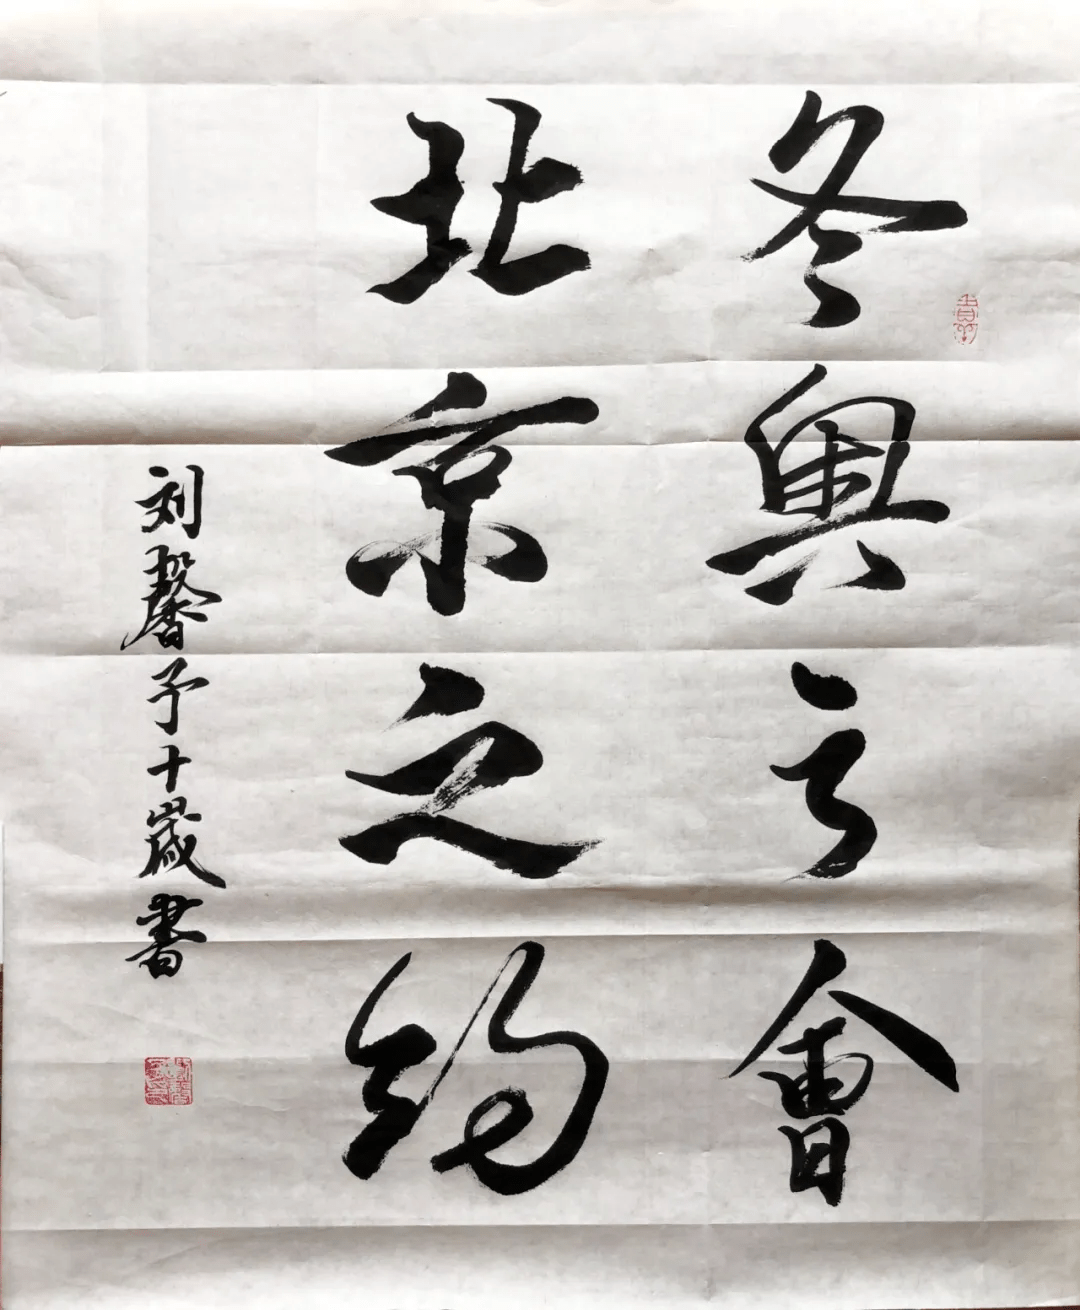 冬奥之會
北京之约
刘馨予十歲書